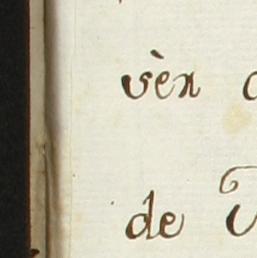 vèn
de